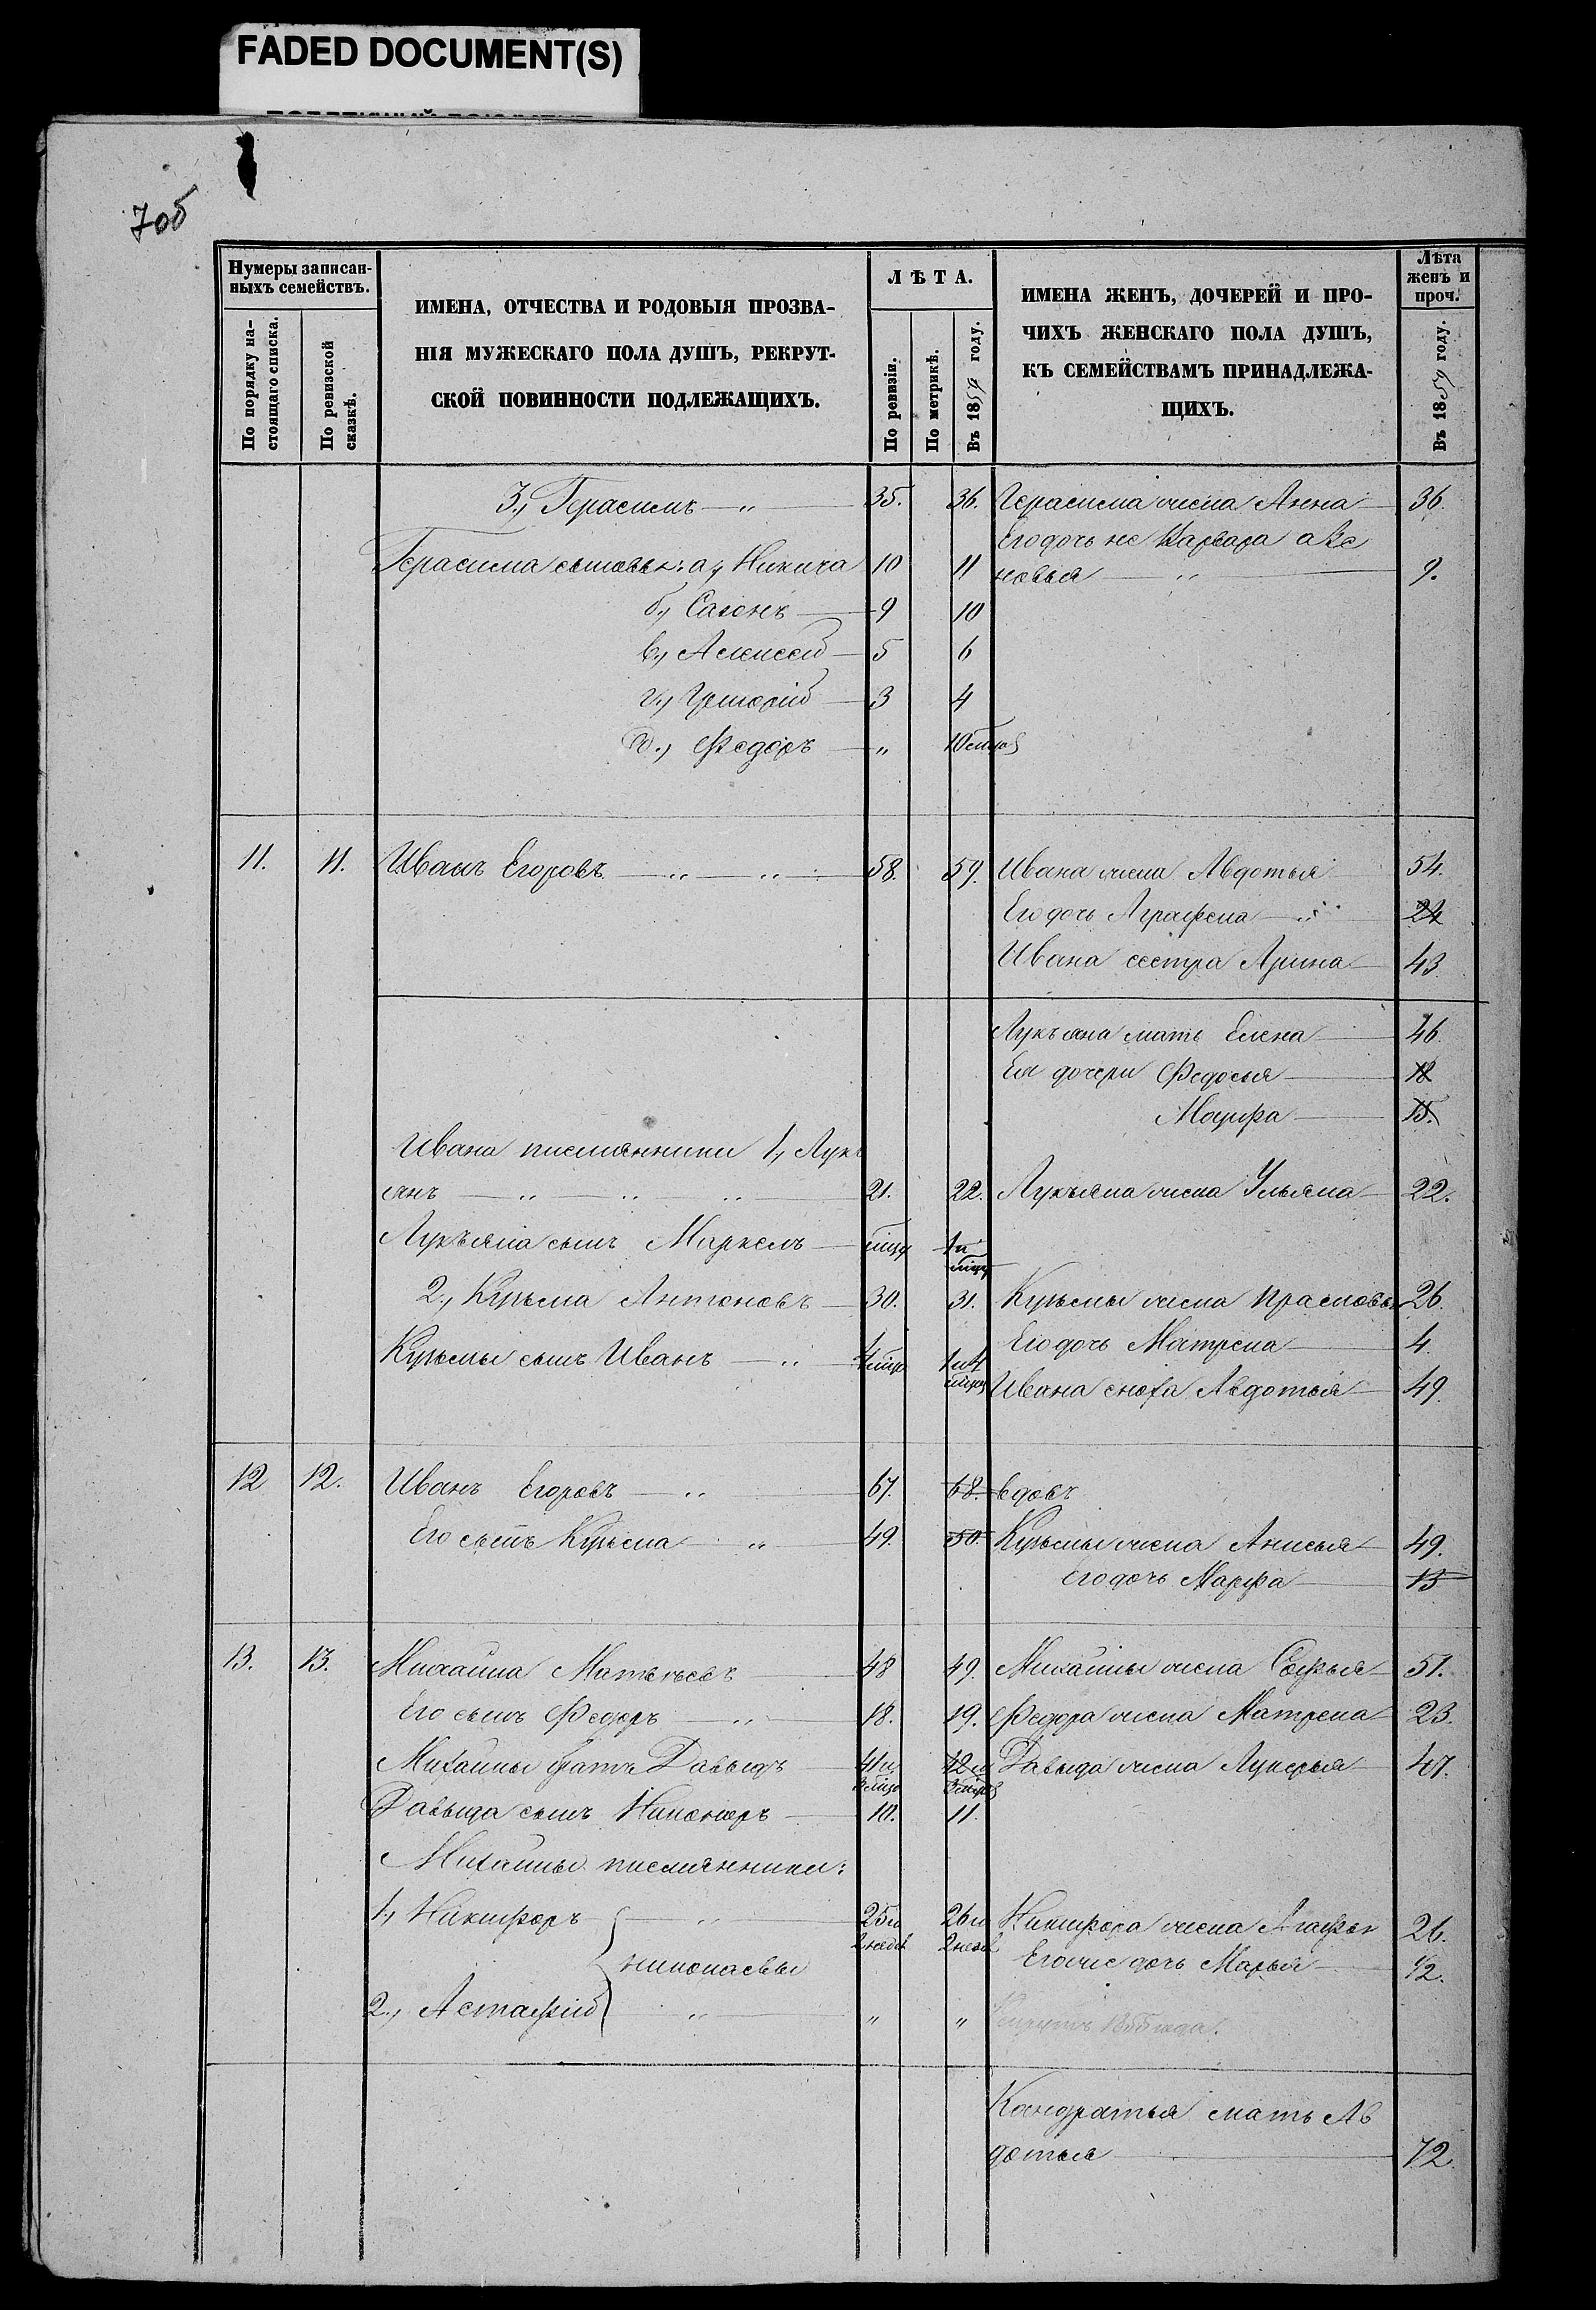 FADED DOCUMENT(S)
705
Нумеры записан-
ныхъ семействъ.
По порядку на-
стоящаго списка.
По ревизской
сказкѣ.
ИМЕНА, ОТЧЕСТВА И РОДОВЫЯ ПРОЗВА-
НІЯ МУЖЕСКАГО ПОЛА ДУШЪ, РЕКРУТ-
СКОЙ ПОВИННОСТИ ПОДЛЕЖАЩИХЪ.
ЛѢТА.
По ревизіи.
По метрикѣ.
Въ 1859 году.
ИМЕНА ЖЕНЪ, ДОЧЕРЕЙ И ПРО-
ЧИХЪ ЖЕНСКАГО ПОЛА ДУШЪ,
КЪ СЕМЕЙСТВАМЪ ПРИНАДЛЕЖА-
ЩИХЪ.
Лѣта
женъ и
проч.
Въ 1859 году.
3., Герасимъ — „ — 35. 36. Герасима жена Анна — 36.
Его дочь не Варвара а Ксе
Герасима сыновья: а, Никита 10 11 новья — „ — 9.
б., Сазонъ — 9 10
в., Алексей — 5 6
г., Григорій — 3 4
д., Федоръ — „ 10
11. 11. Иванъ Егоровъ — „ — „ — 58. 59. Ивана жена Авдотья 54.
Его дочь Аграфена — „ 24
Ивана сестра Арина — 43
Лукъяна мать Елена — 46
Ея дочери Федосья — 18
Марфа — 15.
Ивана племянники 1, Лукъ
янъ — „ — „ — „ — 21. 22. Лукъяна жена Ульяна — 22.
Лукъяна сынъ Маркелъ —
2., Кузьма Антоновъ — 30. 31. Кузьмы жена Прасковья 26.
Его дочь Матрена — 4.
Кузьмы сынъ Иванъ — „ —
Ивана сноха Авдотья — 49
12 12. Иванъ Егоровъ — „ — 67. 68. вдовъ
Его сынъ Кузьма — „ — 49. 50. Кузьмы жена Анисья — 49.
Его дочь Марфа — 15
13. 13. Михайла Матвѣевъ — 48 49. Михайлы жена Софья — 51.
Его сынъ Федоръ — „ — 18. 19. Федора жена Матрена — 23.
Михайлы братъ Давыдъ — 41 и 42 и Давыда жена Лукерья — 47.
Давыда сынъ Никоноръ — 10. 11.
Михайлы племянники:
1., Никифоръ — „ — 25 и 26 и Никифора жена Агафья 26.
2 недѣл 2 недѣл Его же дочь Марья — 1/2.
Николаевы
2., Астафій — „ — „ „ Рекрутъ 1855 года.
Кондратья мать Ав
дотья — 72.